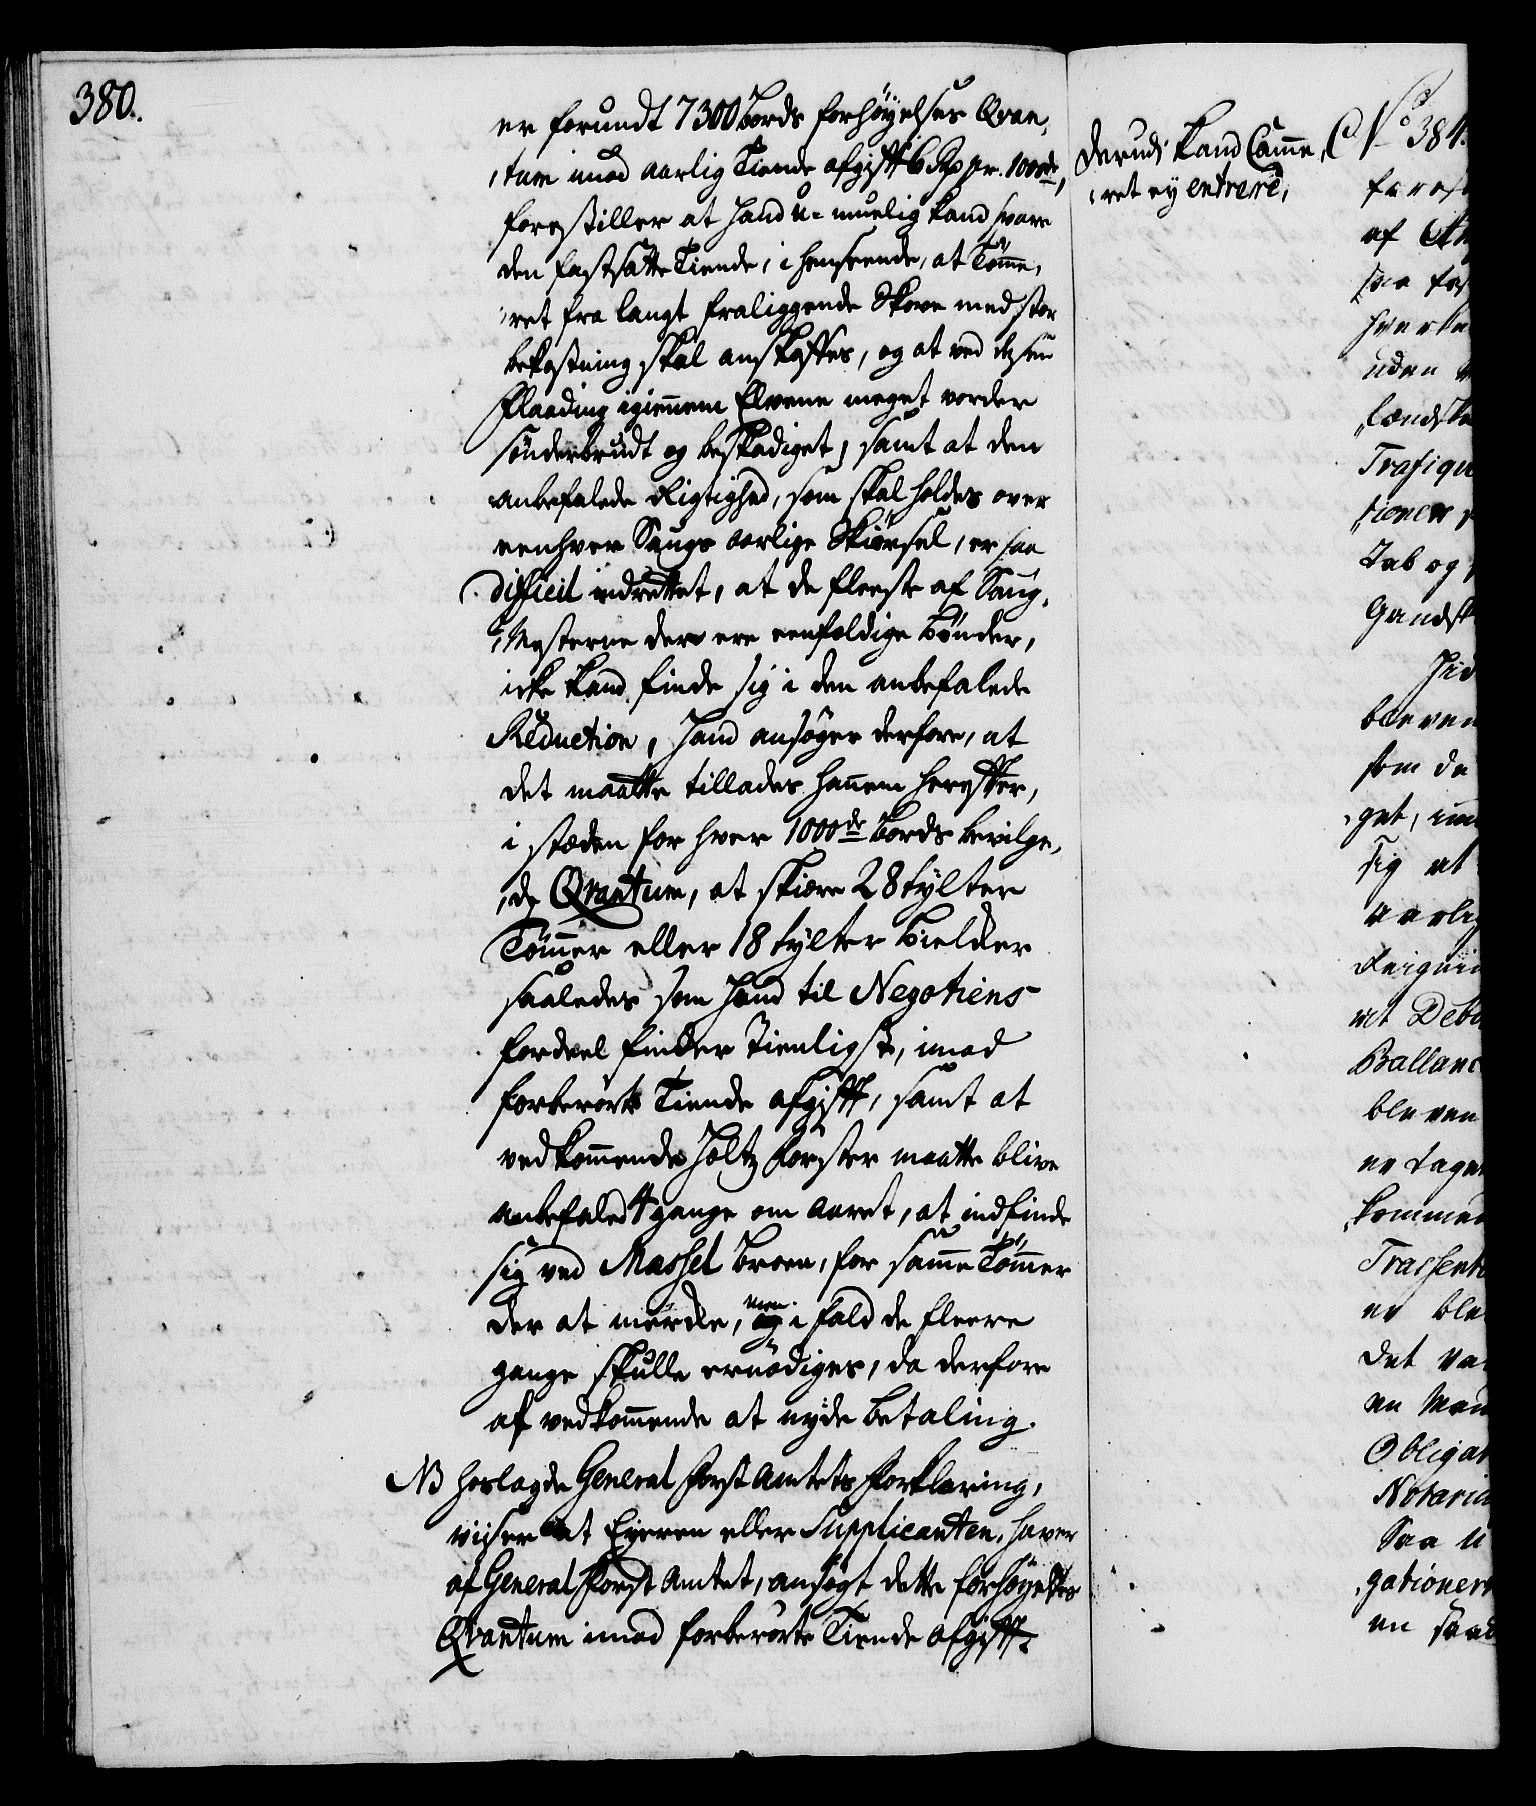 380.
er forundt 7300 Bords forhöyelses Qvan,
,tum imod aarlig Tiende afgift 6 Rd pr. 1000de,
forestiller at hand u-muelig kand svare
den fastsatte Tiende, i henseende, at Tömme,
,ret fra langt fraliggende Skove med stor
bekostning skal anskaffes, og at ved desen
Flaading igiennem Elvene meget vorder
sönderbrudt og beskadiget, samt at den
anbefalede Rigtighed, som skal holdes over
eenhver Saugs aarlige Skiörsel, er saa
dificil indrettet, at de fleeste af Saug,
,Mesterne der ere eenfoldige Bönder,
icke kand finde sig i den anbefalede
Reduction, hand ansöger derfore, at
det maatte tillades hannem herefter,
i stæden for hver 1000de Bords bevilge,
,de Qvantum, at skiære 28 tylter
Tömmer eller 18 tylter Bielcker
saaledes som hand til Negotiens
fordeel finder tienligst, imod
forberörte Tiende afgift, samt at
vedkommende Holtz Förster maatte blive
anbefaled 4 gange om aaret, at indfinde
sig ved Masset Broen, for samme Tömmer
der at mercke, men i fald de fleere
gange skulle ernödiges, da derfore
af vedkommende at nyde betaling.
NB hoslagde General Forst Amtets Forklaring,
viiser at Eyeren eller Supplicanten, haver
af General Forst Amtet, ansögt dette forhöyelses
Qvantum imod forberörte Tiende afgift.
Derudi kand Camme,
,ret ey entrere,
No 384.
forest
af
paa
hverken
uden
Trafique
tioner
Tab og
Gandsk
hid
bleven
som de
get, im
sig at
aarlig
et Deb
Ballanc
bleven
er tagen
kommen
Trassent
er ble
det va
en Man
Obligat
Notaria
Saa u
gationer
en saad